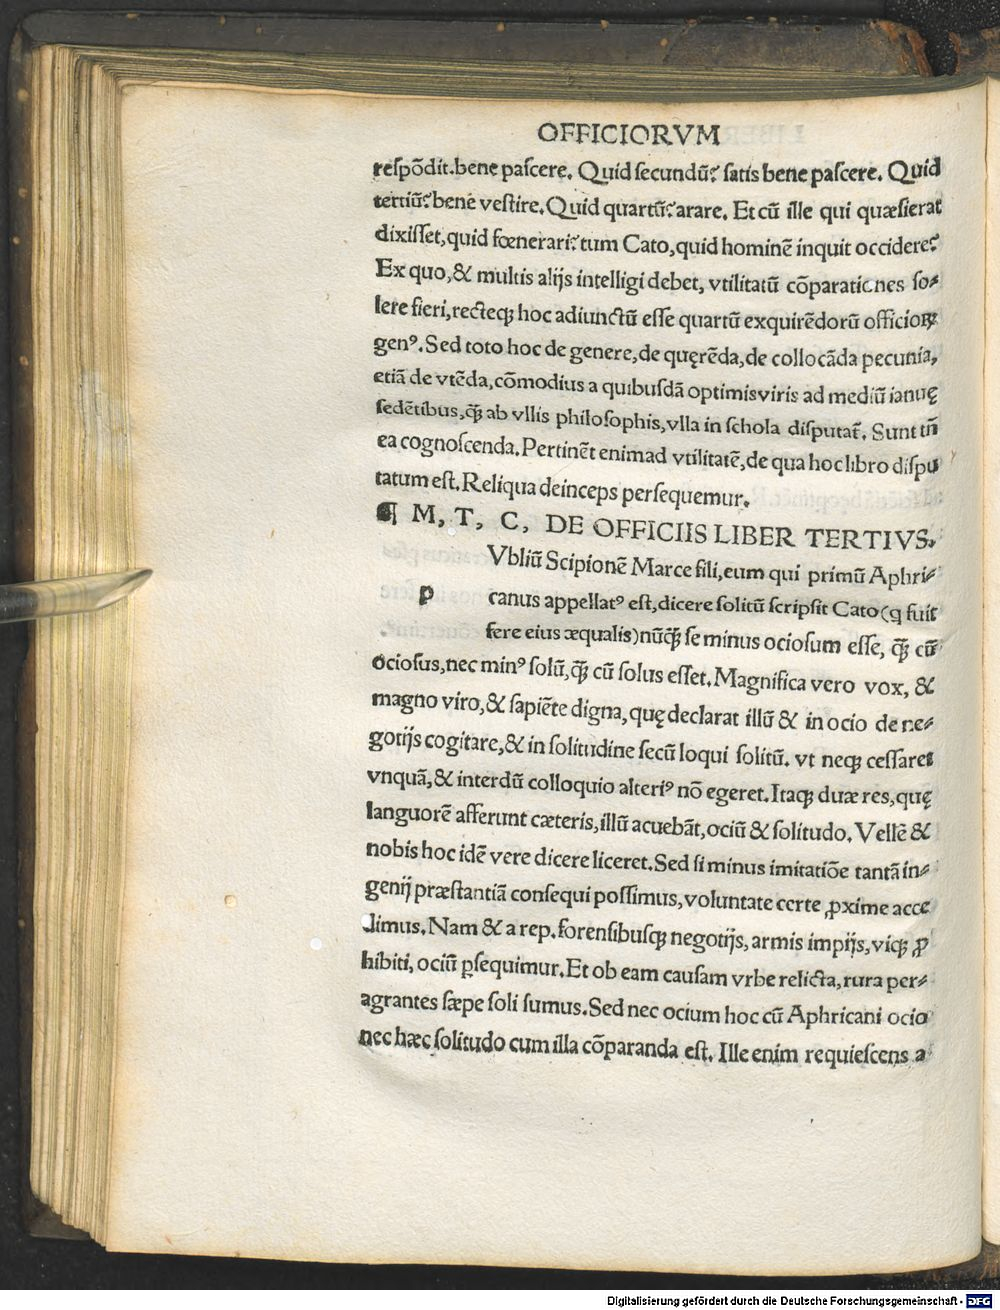 OFFICIORVM
reſpõdit.bene paſcere. Quid ſecundũ? ſatis bene paſcere. Quid
tertiũ? bene veſtire. Quid quartũ? arare. Et cũ ille qui quæſierat
dixiſſet, quid fœnerari? tum Cato, quid hominẽ inquit occidere?
Ex quo, & multis alijs intelligi debet, vtilitatũ cõparationes ſo⸗
lere fieri, recteqꝫ hoc adiunctũ eſſe quartũ exquirẽdorũ officioꝝ
genꝰ. Sed toto hoc de genere, de quęrẽda, de collocãda pecunia,
etiã de vtẽda, cõmodius a quibuſdã optimis viris ad mediũ ianuę
ſedẽtibus, qꝫ̃ ab vllis philoſophis, vlla in ſchola diſputat̃. Sunt tñ
ea cognoſcenda. Pertinẽt enim ad vtilitatẽ, de qua hoc libro diſpu
tatum eſt. Reliqua deinceps perſequemur.
¶ M, T, C, DE OFFICIIS LIBER TERTIVS.
p Vbliũ Scipionẽ Marce fili, eum qui primũ Aphri⸗
canus appellatꝰ eſt, dicere ſolitũ ſcripſit Cato (q fuit
fere eius æqualis) nũqꝫ̃ ſe minus ocioſum eſſe, qꝫ̃ cũ
ocioſus, nec minꝰ ſolũ, qꝫ̃ cũ ſolus eſſet. Magnifica vero vox, &
magno viro, & ſapiẽte digna, quę declarat illũ & in ocio de ne⸗
gotijs cogitare, & in ſolitudine ſecũ loqui ſolitũ. vt neqꝫ ceſſaret
vnquã, & interdũ colloquio alteriꝰ nõ egeret. Itaqꝫ duæ res, quę
languorẽ afferunt cæteris, illũ acuebãt, ociũ & ſolitudo. Vellẽ &
nobis hoc idẽ vere dicere liceret. Sed ſi minus imitatiõe tantã in⸗
genij præſtantiã conſequi poſſimus, voluntate certe ꝓxime acce
dimus. Nam & a rep. forenſibuſqꝫ negotijs, armis impijs, viqꝫ ꝓ
hibiti, ociũ ꝑſequimur. Et ob eam cauſam vrbe relicta, rura per⸗
agrantes ſæpe ſoli ſumus. Sed nec ocium hoc cũ Aphricani ocio
nec hæc ſolitudo cum illa cõparanda eſt. Ille enim requieſcens a
Digitalisierung gefördert durch die Deutsche Forschungsgemeinschaft - DFG